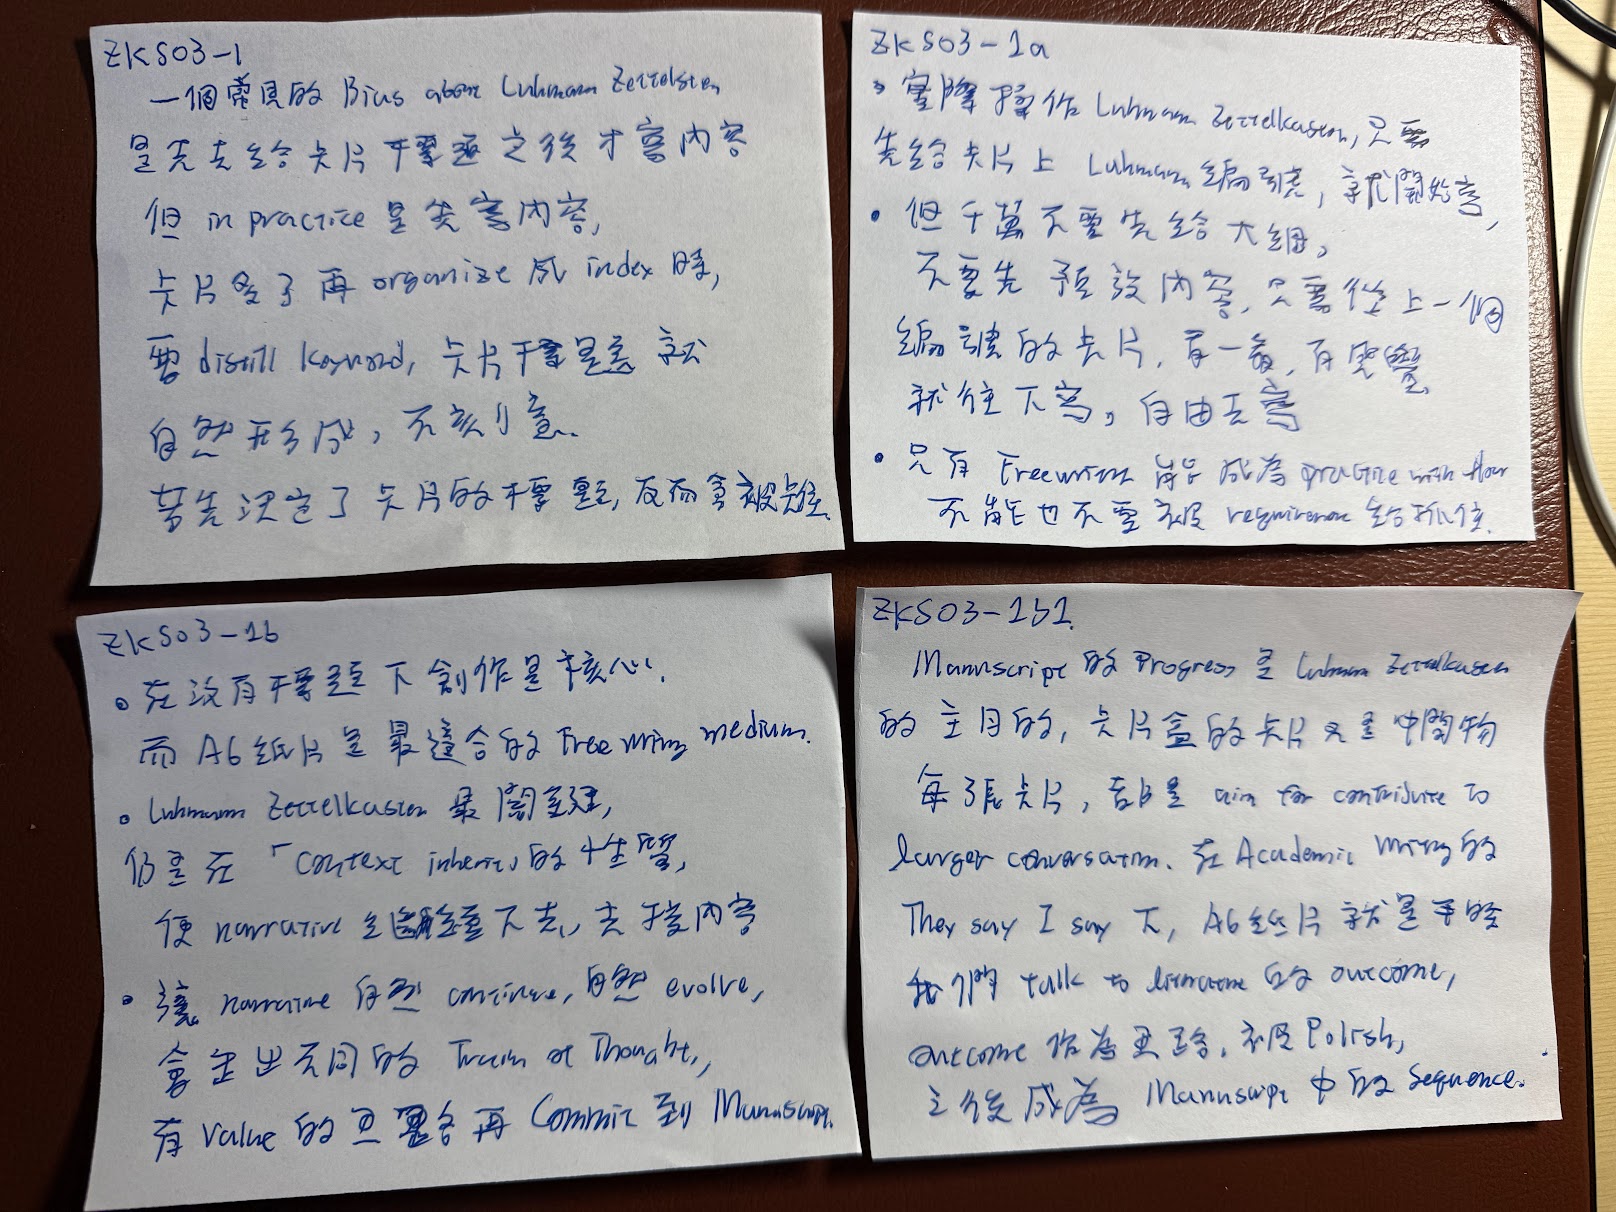 ZKS03-1
一個常見的 Bias about Luhmann Zettelksten
是先去給卡片標題之後才寫內容
但 in practice 是先寫內容,
卡片多了再 organize 成 index 時,
要 distill keyword, 卡片標題就
自然形成, 不刻意、
若先決定了卡片的標題, 反而會被卡住.
ZKS03-1a
實際操作 Luhmann Zettelkasten, 只要
先給卡片上 Luhmann 編號, 就開始寫,
但千萬不要先給大綱,
不要先預設內容, 只要從上一個
編號的卡片, 看一看, 有感覺
就往下寫, 自由去寫
只有 Freewrite 能成為 practice with flow
不能也不要被 requirement 給抓住.
ZKS03-1b
在沒有標題下創作是核心.
而 A6 紙片是最適合的 Free writing medium.
Luhmann Zettelkasten 最關鍵,
仍是在「Context inherit」的性質,
使 narrative 繼下去, 去接內容
讓 narrative 自然 continue, 自然 evolve,
會生出不同的 Train of Thought,
有 value 的思路再 Commit 到 Manuscript.
ZKS03-1b1.
Manuscript 的 Progress 是 Luhmann Zettelkasten
的主目的, 卡片盒的卡片只是中間物
每張卡片, 都是 aim for contribute to
larger conversation. 在 Academic writing 的
They say I say 下, A6 紙片就是平時
我們 talk to literature 的 outcome,
outcome 作為思路, 被 Polish,
之後成為 Manuscript 中的 Sequence.